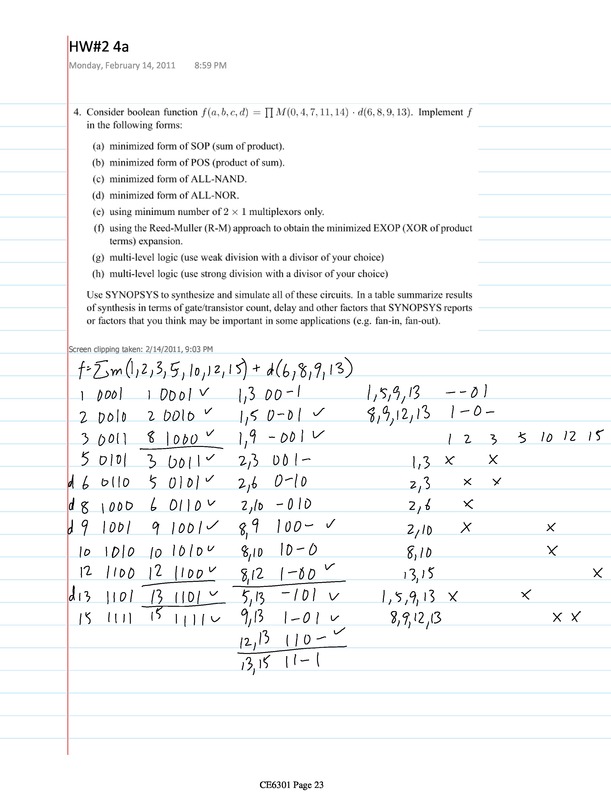 HW#2 4a
Monday, February 14, 2011 8:59 PM
4. Consider boolean function f(a, b, c, d) = ∏ M(0, 4, 7, 11, 14) · d(6, 8, 9, 13). Implement f
in the following forms:
(a) minimized form of SOP (sum of product).
(b) minimized form of POS (product of sum).
(c) minimized form of ALL-NAND.
(d) minimized form of ALL-NOR.
(e) using minimum number of 2 × 1 multiplexors only.
(f) using the Reed-Muller (R-M) approach to obtain the minimized EXOP (XOR of product
terms) expansion.
(g) multi-level logic (use weak division with a divisor of your choice)
(h) multi-level logic (use strong division with a divisor of your choice)
Use SYNOPSYS to synthesize and simulate all of these circuits. In a table summarize results
of synthesis in terms of gate/transistor count, delay and other factors that SYNOPSYS reports
or factors that you think may be important in some applications (e.g. fan-in, fan-out).
Screen clipping taken: 2/14/2011, 9:03 PM
f=∑m(1,2,3,5,10,12,15)+d(6,8,9,13)
1 0001 1 0001 ✓ 1,3 00-1 1,5,9,13 --01
2 0010 2 0010 ✓ 1,5 0-01 ✓ 8,9,12,13 1-0-
3 0011 8 1000 ✓ 1,9 -001 ✓ 1 2 3 5 10 12 15
5 0101 3 0011 ✓ 2,3 001- 1,3 x x
d 6 0110 5 0101 ✓ 2,6 0-10 2,3 x x
d 8 1000 6 0110 ✓ 2,10 -010 2,6 x
d 9 1001 9 1001 ✓ 8,9 100- ✓ 2,10 x x
10 1010 10 1010 ✓ 8,10 10-0 8,10 x
12 1100 12 1100 ✓ 8,12 1-00 ✓ 13,15 x
d13 1101 13 1101 ✓ 5,13 -101 ✓ 1,5,9,13 x x
15 1111 15 1111 ✓ 9,13 1-01 ✓ 8,9,12,13 x x
12,13 110- ✓
13,15 11-1
CE6301 Page 23